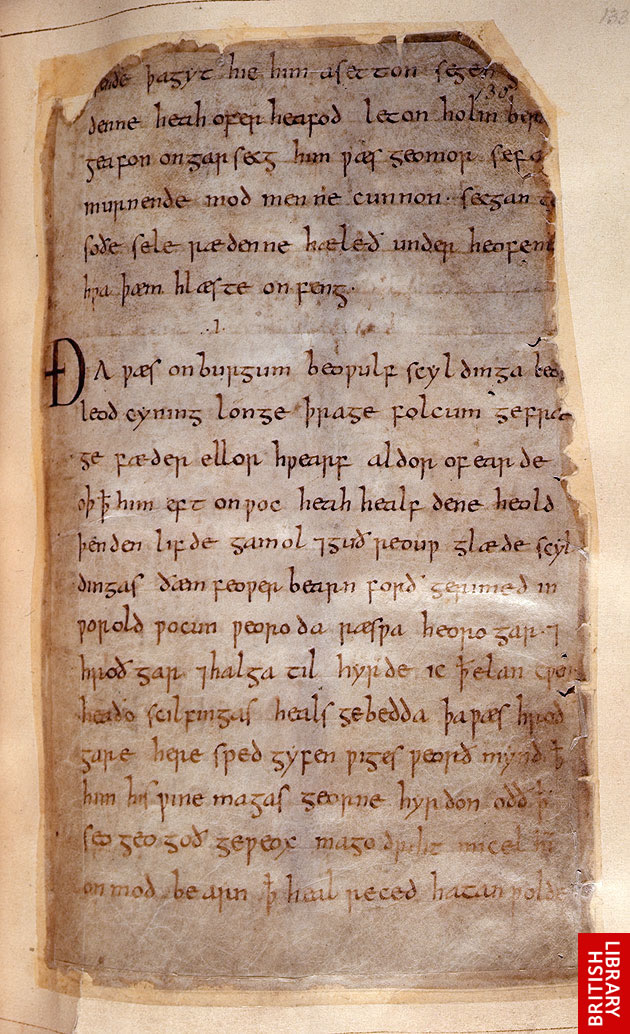 133
þagyt hie him asetton segen
130
denne heah ofer heafod leton holm ber
geafon ongarsecg him ƿæs geomor sefa
murnende mod men ne cunnon · secgan
soðe sele rædenne hæleð under heofen
hƿa þæm hlæste onfeng ·
·I·
ÐA ƿæs onburgum beoƿulf scyldinga
leod cyning longe þrage folcum gefræ
ge fæder ellor hƿearf aldor ofearde
oþ ꝥ him eft onƿoc heah healfdene heold
þenden lifde gamol ⁊guðreouƿ glæde scyl
dingas ðæm feoƿer bearn forð gerimed in
ƿorold ƿocun ƿeoroda ræsƿa heorogar · ⁊
hroðgar ⁊halga til hyrde ic ꝥ elan cƿen
heaðo scilfingas heals gebedda þaƿæs hroð
gare here sped gyfen ƿiges ƿeorð mynd ꝥ
him his ƿine magas georne hyrdon oðð ꝥ
seo geogoð geƿeox magodriht micel
onmod bearn ꝥ heal reced hatan ƿolde
BRITISH
LIBRARY